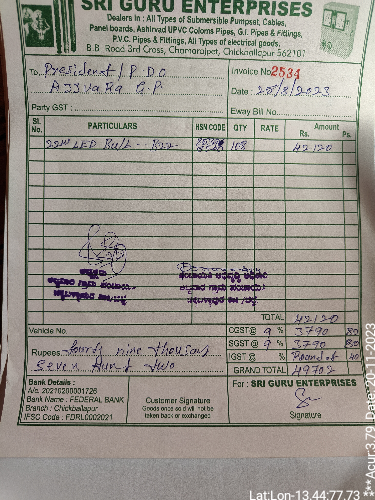 SRI GURU ENTERPRISES
Dealers in : All Types of Submersible Pumpset, Cables,
Panel boards, Ashirvad UPVC Coloms Pipes, G.I. Pipes & Fittings,
P.V.C. Pipes & Fittings, All Types of electrical goods,
B.B. Road 3rd Cross, Chamarajpet, Chickballapur 562101
To, President / P.D.O Invoice No 2534
G.P Date : /8/2023
Party GST : Eway Bill No.
Sl. No. PARTICULARS HSN CODE QTY RATE Amount Rs. Ps.
LED 108 42120
TOTAL 42120
Vehicle No. CGST@ 9 % 3790 80
SGST@ 9 % 3790 80
Rupees forty nine thousand IGST @ % Round of 40
Seven two GRAND TOTAL 49702
Bank Details :
A/c. 20210200001726
Bank Name : FEDERAL BANK
Branch : Chickballapur
IFSC Code : FDRL0002021
Customer Signature
Goods once sold will not be
taken back or exchanged
For : SRI GURU ENTERPRISES
Signature
***Acur:3.79 Date:20-11-2023
Lat:Lon-13.44:77.73